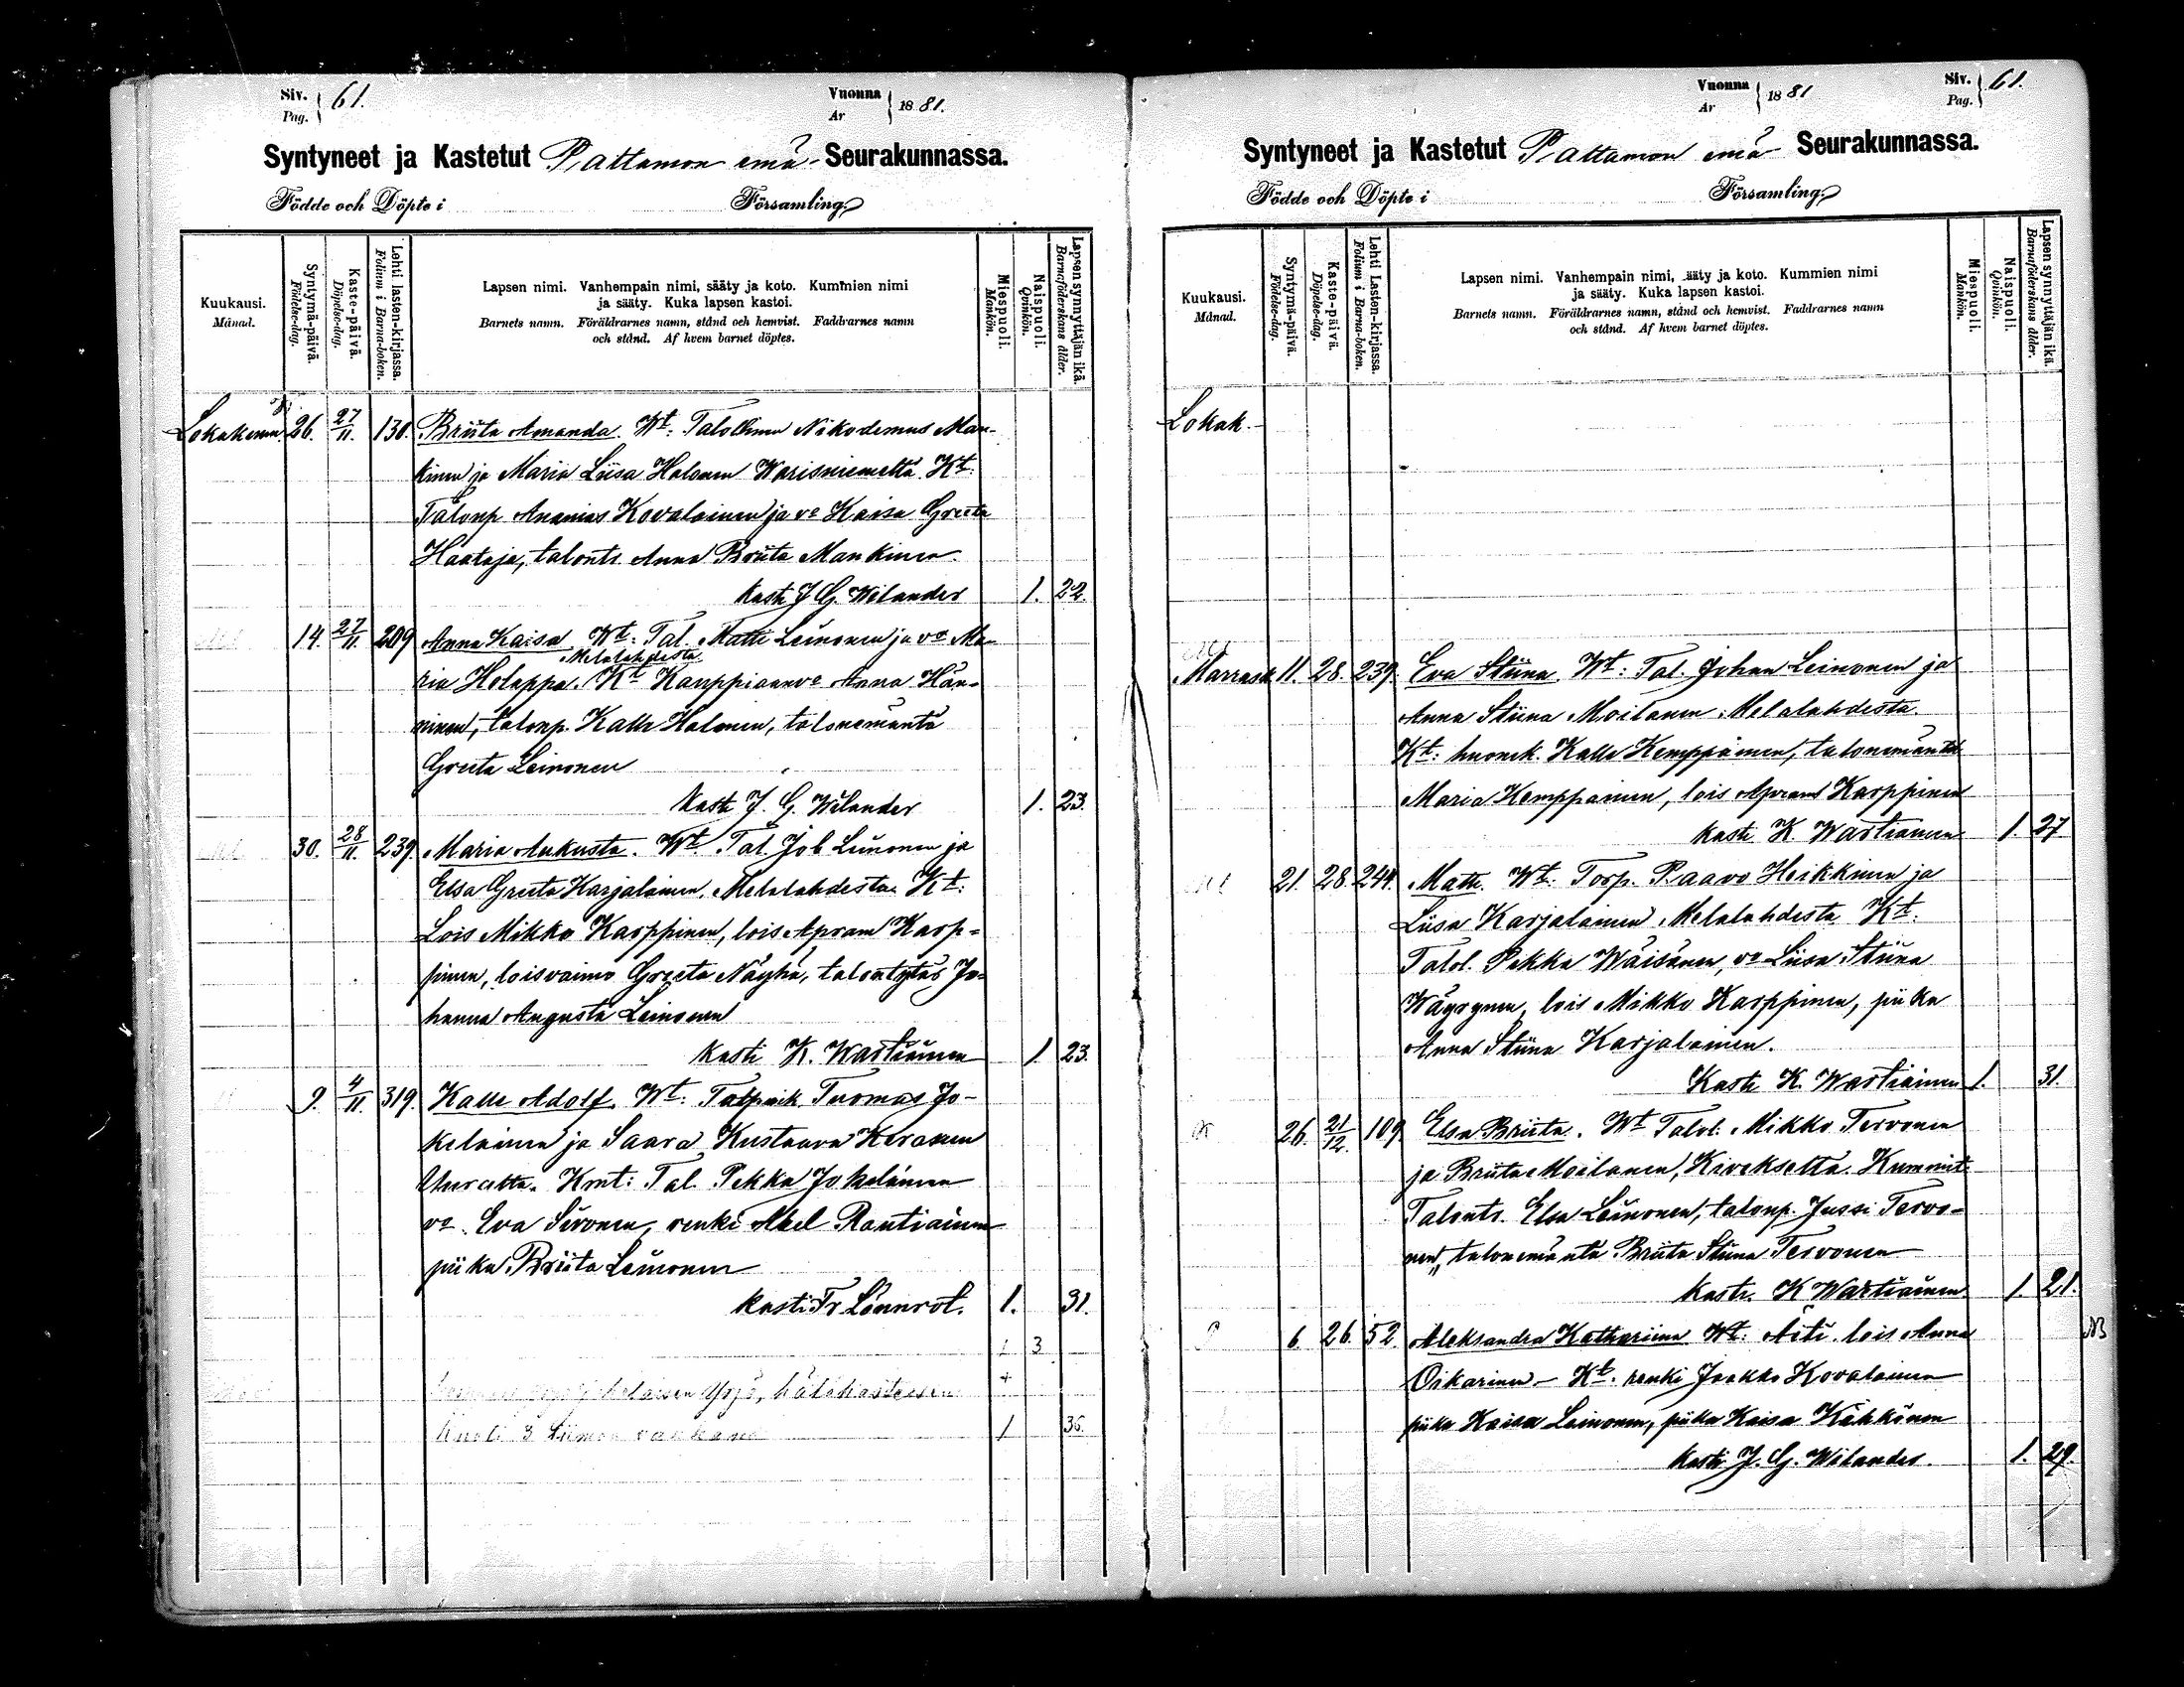 Siv. Pag. 61. Vuonna År 1881.
Syntyneet ja Kastetut Paltamon emä- Seurakunnassa.
Födde och Döpte i Församling
Kuukausi. Månad.
Syntymä-päivä. Födelse-dag.
Kaste-päivä. Döpelse-dag.
Lehti lasten-kirjassa. Folium i Barna-boken.
Lapsen nimi. Vanhempain nimi, sääty ja koto. Kummien nimi
ja sääty. Kuka lapsen kastoi.
Barnets namn. Föräldrarnes namn, stånd och hemvist. Faddrarnes namn
och stånd. Af hvem barnet döptes.
Miespuoli. Mankön.
Naispuoli. Qvinkön.
Lapsen synnyttäjän ikä. Barnaföderskans ålder.
Lokakuun 26. 27/11. 130. Briita Amanda. Wt: Talollinen Nikodemus Man-
kinen ja Maria Liisa Halonen Warisniemeltä. Kt:
Talonp Ananias Kovalainen ja vo Kaisa Greeta
Haataja, talontr Anna Briita Mankinen.
Kasti J G. Wilander 1. 22.
14. 27/11. 209 Anna Kaisa Wt: Tal. Matti Leinonen ja vo Ma-
Melalahdesta
ria Holappa. Kt Kauppiaanvo Anna Hän-
ninen, talonp. Kalle Halonen, talonemäntä
Greeta Leinonen
Kasti J. G. Wilander 1. 23.
Ml 30. 28/11. 239. Maria Aukusta. Wt. Tal. Job Leinonen ja
Elsa Greeta Karjalainen. Melalahdesta Kt:
Lois Mikko Karppinen, lois Apram Karp-
pinen, loisvaimo Greeta Näyhä, talontytär Jo-
hanna Augusta Leinonen
Kasti K. Wartiainen 1. 23.
9. 4/11. 319. Kalle Adolf. Wt: Tuomas Jo-
kelainen ja Saara Kustaava Keränen
Kmt: Tal. Pekka Jokelainen
vo. Eva Sironen, renki Abel Rautiainen
piika Briita Leinonen
kasti Fr Lönnrot. 1. 31.
1 3
+
1 36.
Vuonna År 1881 Siv. Pag. 61.
Syntyneet ja Kastetut Paltamon emä Seurakunnassa.
Födde och Döpte i Församling
Kuukausi. Månad.
Syntymä-päivä. Födelse-dag.
Kaste-päivä. Döpelse-dag.
Lehti Lasten-kirjassa. Folium i Barna-boken.
Lapsen nimi. Vanhempain nimi, sääty ja koto. Kummien nimi
ja sääty. Kuka lapsen kastoi.
Barnets namn. Föräldrarnes namn, stånd och hemvist. Faddrarnes namn
och stånd. Af hvem barnet döptes.
Miespuoli. Mankön.
Naispuoli. Qvinkön.
Lapsen synnyttäjän ikä. Barnaföderskans ålder.
Lokak.
Marrask 11. 28. 239. Eva Stiina. Wt: Tal. Johan Leinonen ja
Anna Stiina Moilanen Melalahdesta.
Kt: huonek. Kalle Kemppainen, talonemäntä
Maria Kemppainen, lois Apram Karppinen
kasti K. Wartiainen 1. 27
Ml 21. 28. 241. Matti. Wt: Torp. Paavo Heikkinen ja
Liisa Karjalainen Melalahdesta Kt:
Talol. Pekka Wäisänen, vo Liisa Stiina
Wäyrynen, lois Mikko Karppinen, piika
Anna Stiina Karjalainen.
Kasti K. Wartiainen 1. 31.
26. 21/12. 109. Elsa Briita. Wt Talol. Mikko Tervonen
ja Briita Moilanen, Kivekseltä. Kummit:
Talontr. Elsa Leinonen, talonp. Jussi Tervo-
nen, talonemäntä Briita Stiina Tervonen
kasti. K Wartiainen. 1. 21.
6. 26. 52. Aleksandra Kathariina Wt: Äiti lois Anna NB
Oikarinen - Kt: renki Jaakko Kovalainen
piika Kaisa Leinonen, piika Kaisa Kähkönen
Kasti J. G. Wilander. 1. 29.